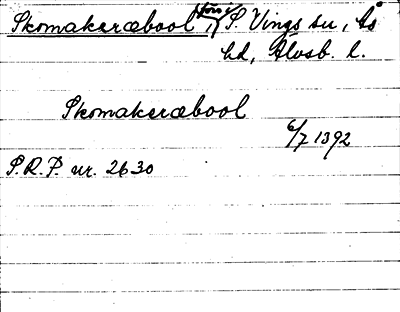 Skomakeræbool, (förs.) S. Vings sn, Ås
hd, Älvsb. l.
Skomakeræbool
6/7 1392
S.R.P. nr. 2630